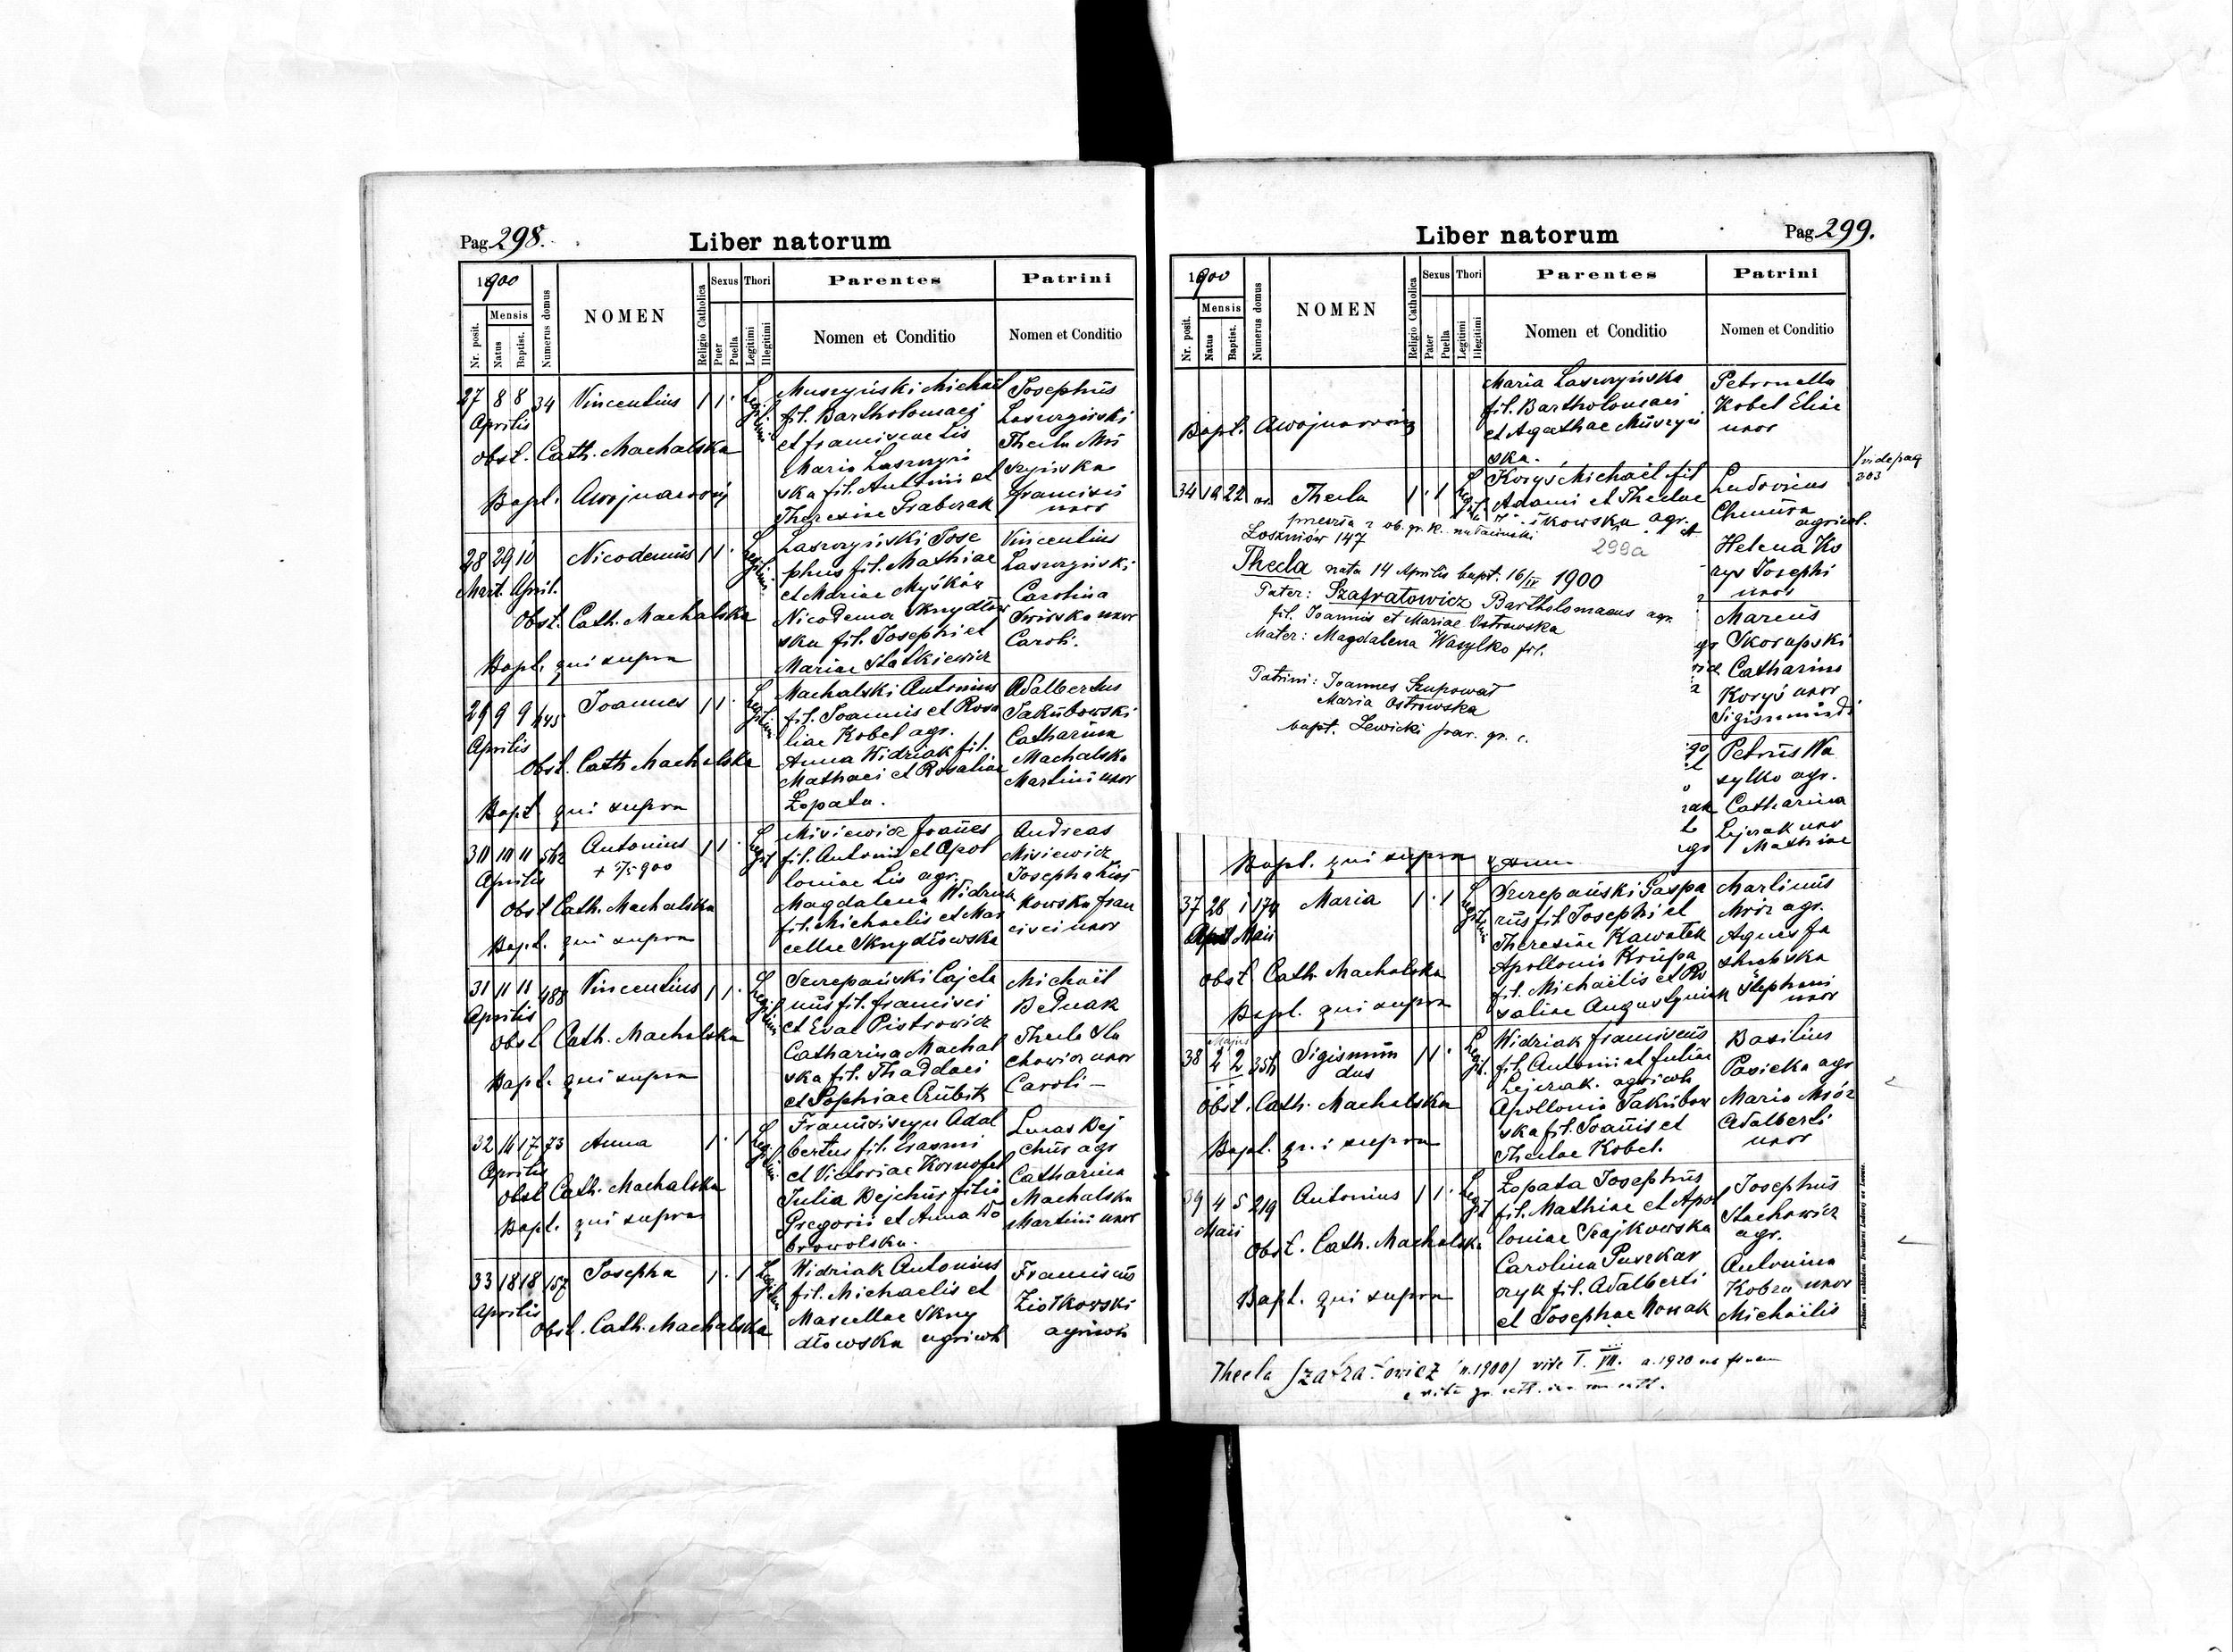 Pag. 298.
Liber natorum
1900
Nr. posit.
Mensis
Natus
Baptist.
Numerus domus
NOMEN
Religio Catholica
Sexus
Puer
Puella
Thori
Legitimi
Illegitimi
Parentes
Nomen et Conditio
Patrini
Nomen et Conditio
27 8 8 34 Vincentius 1 1 Legitimi
Aprilis
Obst. Cath. Machalska
Bapt.
Muszyński Michael
fil. Bartholomaei
et Franciscae Lis
Maria Laszczyń
ska fil. Antonii et
Theresiae Grabczak
Josephus
Laszczyński
Thecla Mu
szyńska
Francisci
uxor
28 29 10 Nicodemus 1 1 Legitimi
Mart. April.
Obst. Cath. Machalska
Bapt. qui supra
Laszczyński Jose
phus fil. Mathiae
et Mariae Myśków
Nicodema Skrydłow
ska fil. Josephi et
Mariae
Vincentius
Laszczyński
Carolina
uxor
Caroli.
29 9 9 Joannes 1 1
Aprilis
Obst. Cath. Machalska
Bapt. qui supra
Machalski Antonius
fil. Joannis et Rosa
liae Kobel agr.
Anna Widziak fil.
Mathaei et Rosaliae
Łopata.
Adalbertus
Jakubowski
Catharina
Machalska
Martini uxor
30 10 11 512 Antonius 1 1
Aprilis
Obst. Cath. Machalska
Bapt. qui supra
Misiewicz Joannes
fil. Antonii et Apol
loniae Lis agr.
Magdalena Widziak
fil. Michaelis et Mar
cellae Skrydłowska
Andreas
Misiewicz
kowska Fran
cisci uxor
31 11 11 488 Vincentius 1 1 Legitimi
Aprilis
Obst. Cath. Machalska
Bapt. qui supra
Szczepański Cajeta
nus fil. Francisci
et Evae Piotrowicz
Catharina Machal
ska fil. Thaddaei
et Sophiae
Michael
Bednak
Thecla Sta
chowicz uxor
Caroli
32 16 17 73 Anna 1 1
Aprilis
Obst. Cath. Machalska
Bapt. qui supra
Adal
bertus fil. Erasmi
et Victoriae
Julia Dejchus filia
Gregorii et Anna Do
browolska.
Lucas Dej
chus agr
Catharina
Machalska
Martini uxor
33 18 18 157 Josepha 1 1
Aprilis
Obst. Cath. Machalska
Widziak Antonius
fil. Michaelis et
Marcellae Skry
dłowska agricol
Franciscus
Ziółkowski
agricol
Liber natorum
Pag. 299.
1900
Nr. posit.
Mensis
Natus
Baptist.
Numerus domus
NOMEN
Religio Catholica
Sexus
Pater
Puella
Thori
Legitimi
Illegitimi
Parentes
Nomen et Conditio
Patrini
Nomen et Conditio
Bapt.
Maria Laszczyńska
fil. Bartholomaei
et Agathae Muszyń
ska.
Petronella
Kobel Eliae
uxor
vide pag
303
34 19 22 Thecla 1 1
Koryś Michael fil
Adami et Theclae
agr.
Ludovicus
Chmura
agricol.
Helena Ko
rys Josephi
uxor
Łoszniów 147
299a
Thecla nata 14 Aprilis bapt. 16/IV 1900
Pater: Szafratowicz Bartholomaeus agr.
fil. Joannis et Mariae Ostrowska
Mater: Magdalena Wasylko fil.
Patrini: Joannes Szupował
Maria Ostrowska
bapt. Lewicki par. gr. c.
Marcus
Skorupski
Catharina
Koryś uxor
Sigismundi
Petrus Wa
sylko agr.
Catharina
Lejczak uxor
Mathiae
Bapt. qui supra
37 28 1 174 Maria 1 1
April Maii
Obst. Cath. Machalska
Bapt. qui supra
Szczepański Gaspa
rus fil. Josephi et
Theresiae Kawałek
Apollonia Krupa
fil. Michaelis et Ro
saliae Augustyniak
Martinus
Mróz agr.
Agnes Ja
Stephani
uxor
Majus
38 2 2 356 Sigismun
dus 1 1
Obst. Cath. Machalska
Bapt. qui supra
Widziak Franciscus
fil. Antonii et Juliae
Lejczak agricol
Apollonia Jakubow
ska fil. Joannis et
Theclae Kobel.
Basilius
Pasieka agr
Maria Mróz
Adalberti
uxor
39 4 5 219 Antonius 1 1
Maii
Obst. Cath. Machalska
Bapt. qui supra
Łopata Josephus
fil. Mathiae et Apol
loniae
Carolina Puszkar
czyk fil. Adalberti
et Josephae Nowak
Josephus
Stachowicz
agr.
Antonina
Kobza uxor
Michaelis
Thecla Szafratowicz (n. 1900) vide T. VII. a. 1920